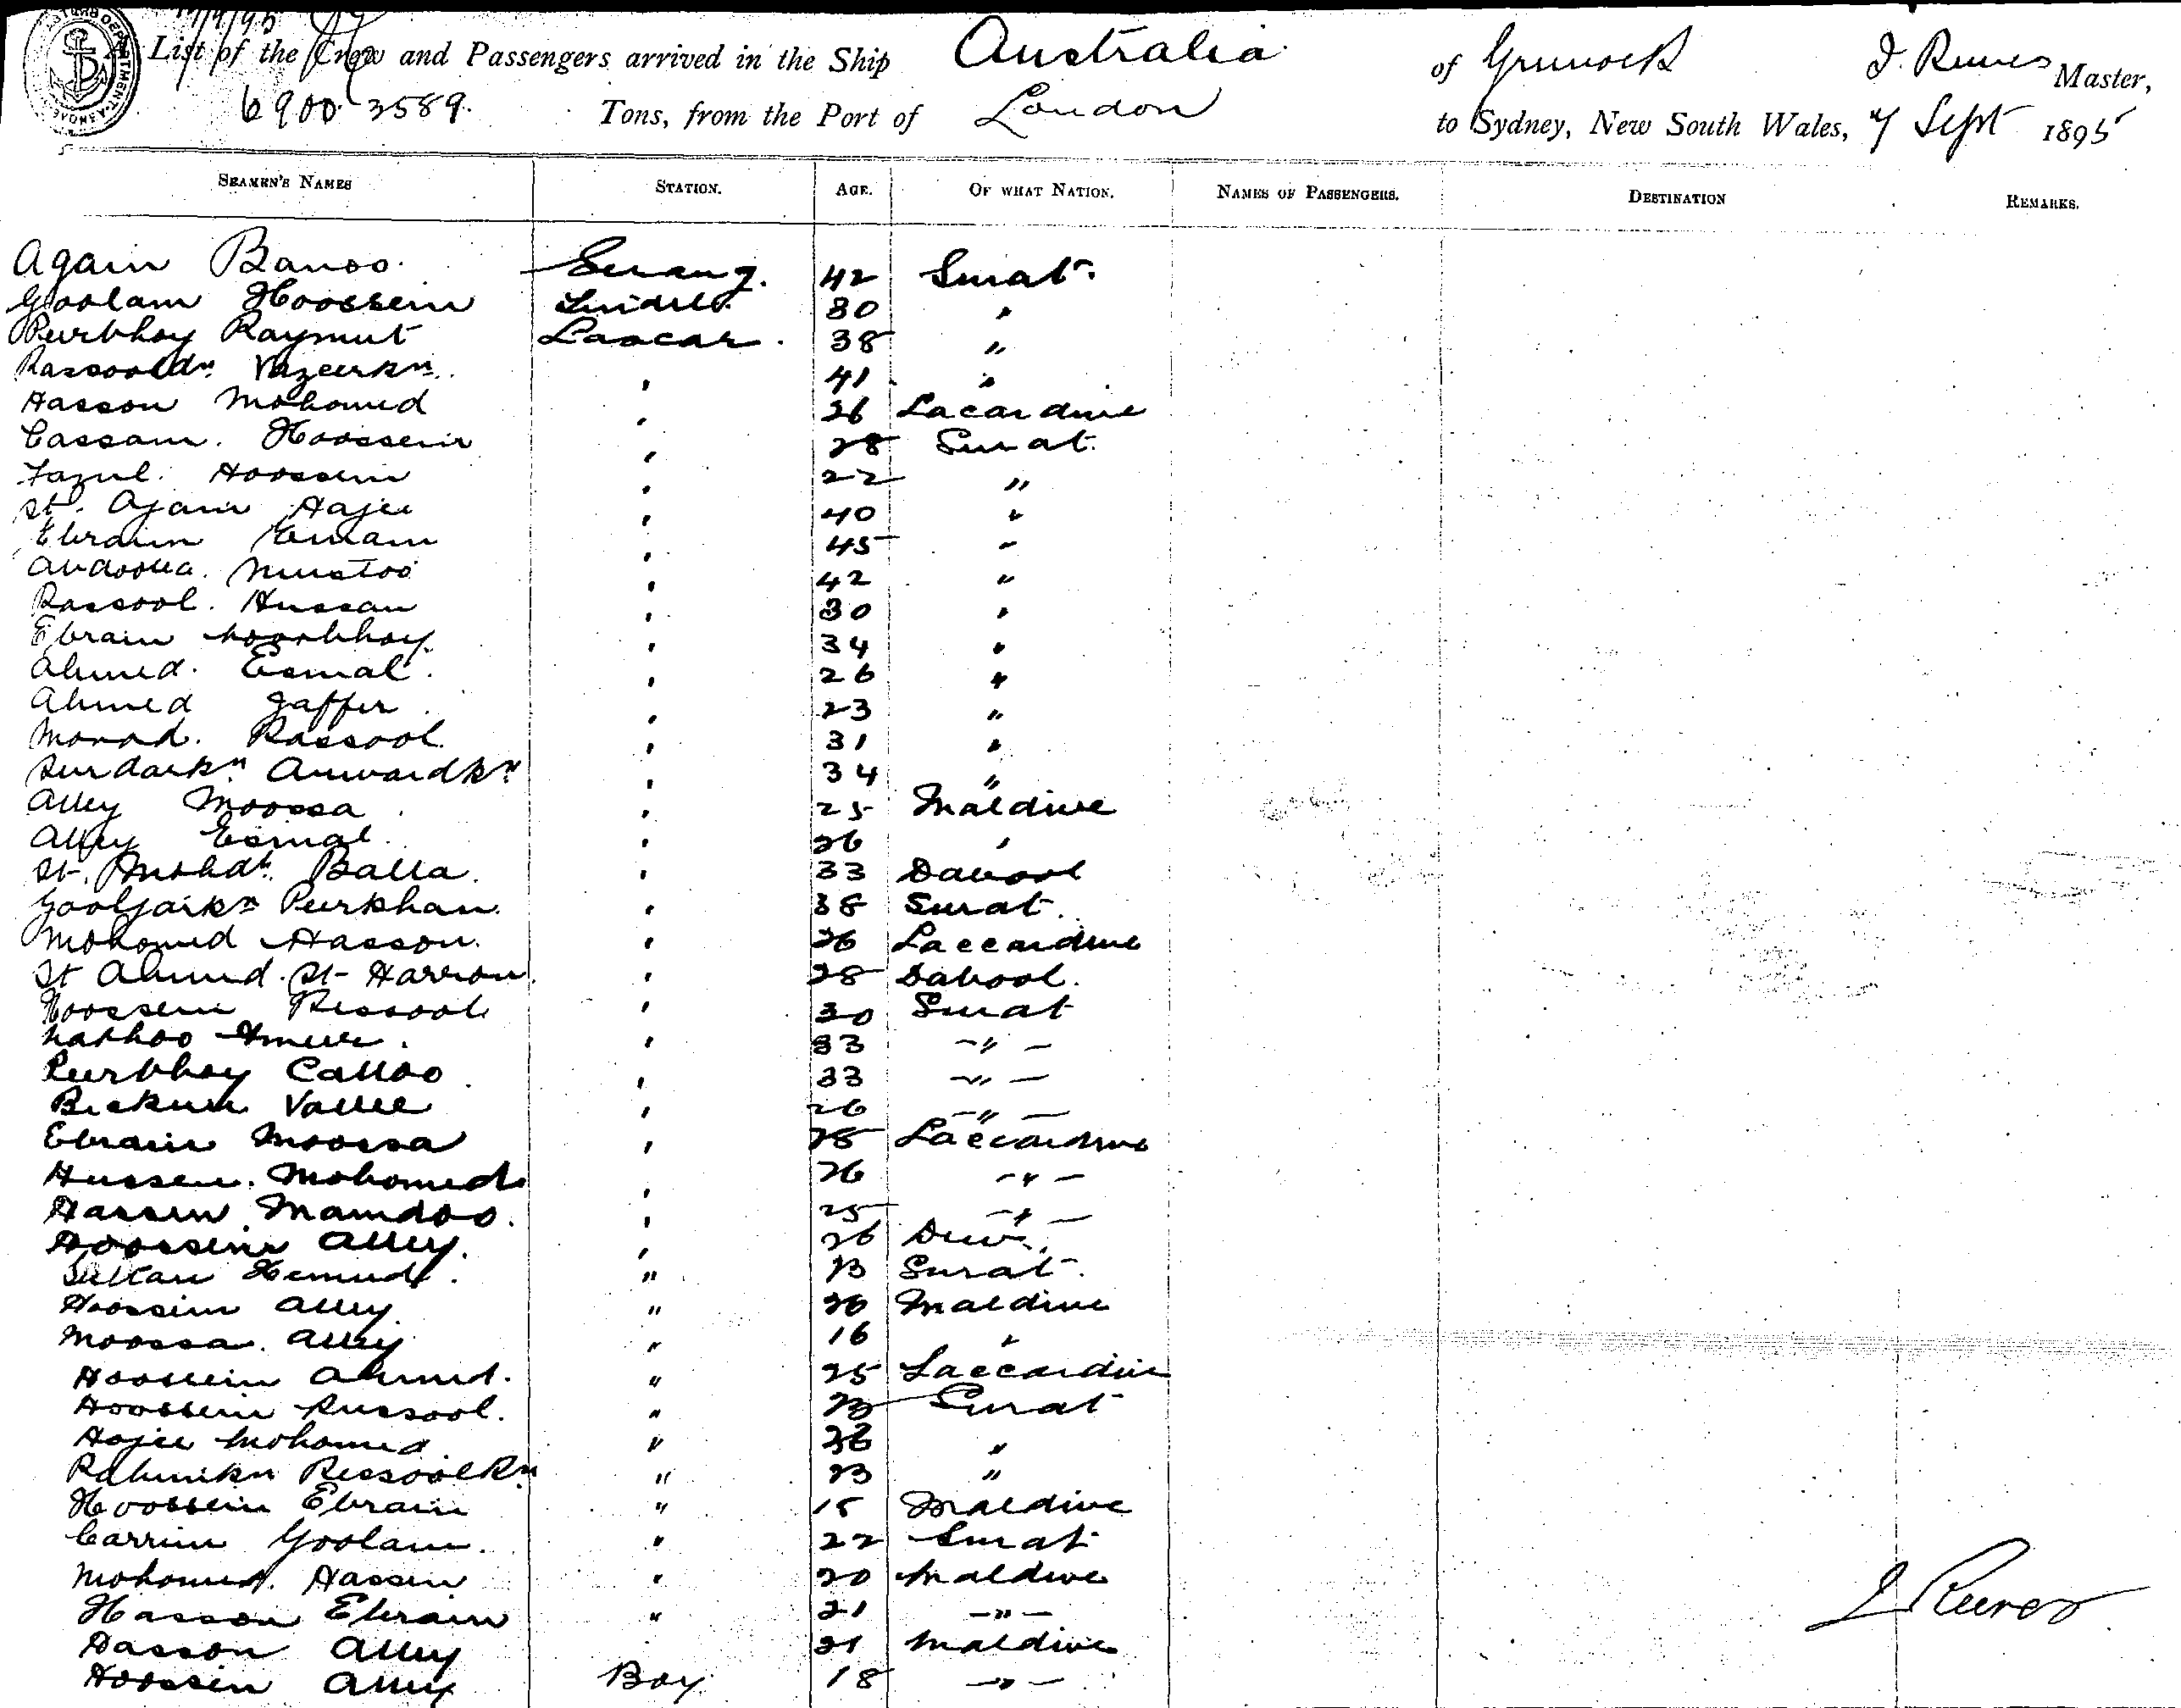 A List of the Crew and Passengers arrived in the Ship Australia of Greenock J. Reeves Master,
6900 3589 Tons, from the Port of London to Sydney, New South Wales, Sept 1895
SEAMEN'S NAMES STATION. AGE. OF WHAT NATION. NAMES OF PASSENGERS. DESTINATION REMARKS.
Agam Banoo Serang. 42 Surat
Goolam Hoossein Tindel 30 "
Peerbhoy Raymut Lascar 38 "
Rassooldn Vazeerkn " 41 "
Hasson Mohomed " 26 Lacardive
Cassam. Hoossein " 28 Surat.
Fazul. Hoossein " 22 "
St. Ajam Hajee " 40 "
Ebraim Emam " 45 "
Abdoolla. " 42 "
Rassool. Hussan " 30 "
Ebraim Noorbhoy. " 34 "
Ahmed. Esmal. " 26 "
Ahmed Jaffer " 23 "
Rassool. " 31 "
Surdarkn " 34 "
Alley Moossa " 25 Maldive
Alley Esmal. " 26 "
St. Balla. " 33 Dabool
Peerkhan. " 38 Surat.
Mohomed Hasson. " 26 Laccardive
St Ahmed. St Harron. " 28 Dabool.
Hoossein Ressool " 30 Surat
Nathoo " 33 -"-
Peerbhoy Calloo " 33 -"-
Vallee " 26 -"-
Ebraim Moossa " 28 Laccardive
Hussen. Mohomed " 26 -"-
Hassen Mamdoo. " 25 -"-
Hoossein Alley. " 26
Sultan " 23 Surat.
Hoossein Alley " 26 Maldive
Moossa. Alley " 16 "
Hoossein Ahmed. " 25 Laccardive
Hoossein Russool. " 23 Surat
Hajee Mohomed " "
Rahimkn Ressoolkn " 23 "
Hoossein Ebraim " 15 Maldive
Carrim Goolam. " 22 Surat
Mohomed. Hassen " 20 Maldive
Hasson Ebraim " 21 -"-
Hasson Alley 21 Maldive
Hoossein Alley Boy 18 -"-
J Reeves